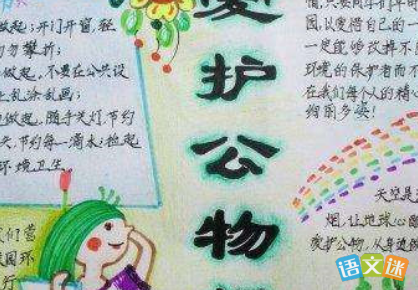 做起；开门开窗，轻
勿攀折；
做起，不要在公共设
上乱涂乱画；
做起，随手关灯，节约
天，节约每一滴水；捡起
环境卫生。
爱护公物
园，以爱惜自己的一
一定能够改掉不
环境的保护者而不
在我们每个人的精心
绚丽多姿！
天空是
烟，让地球心
爱护公物，从身边做
们营
园环
行
语文迷